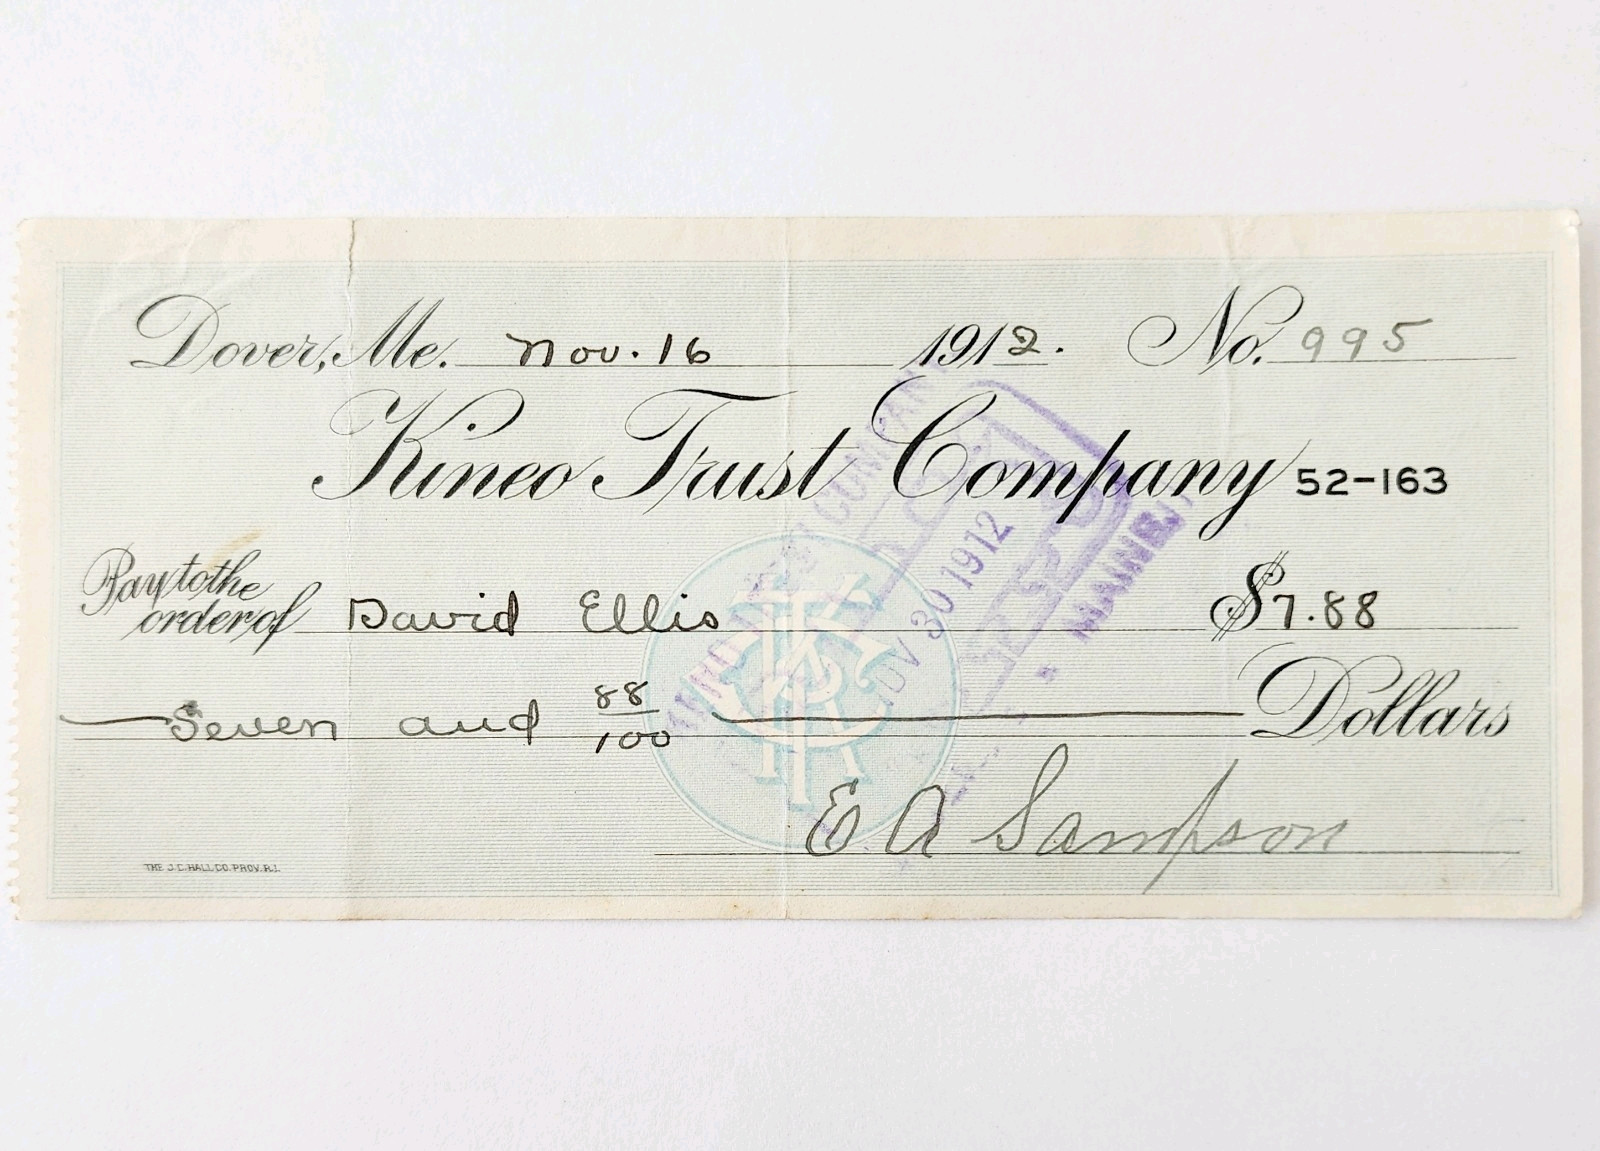 Dover, Me. Nov. 16 1912. No. 995
Kineo Trust Company 52-163
Pay to the
order of David Ellis $7.88
Seven and 88/100 Dollars
E A Sampson
THE J.C. HALL CO. PROV. R.I.
COMPANY
NOV 30 1912
MAINE
KTC